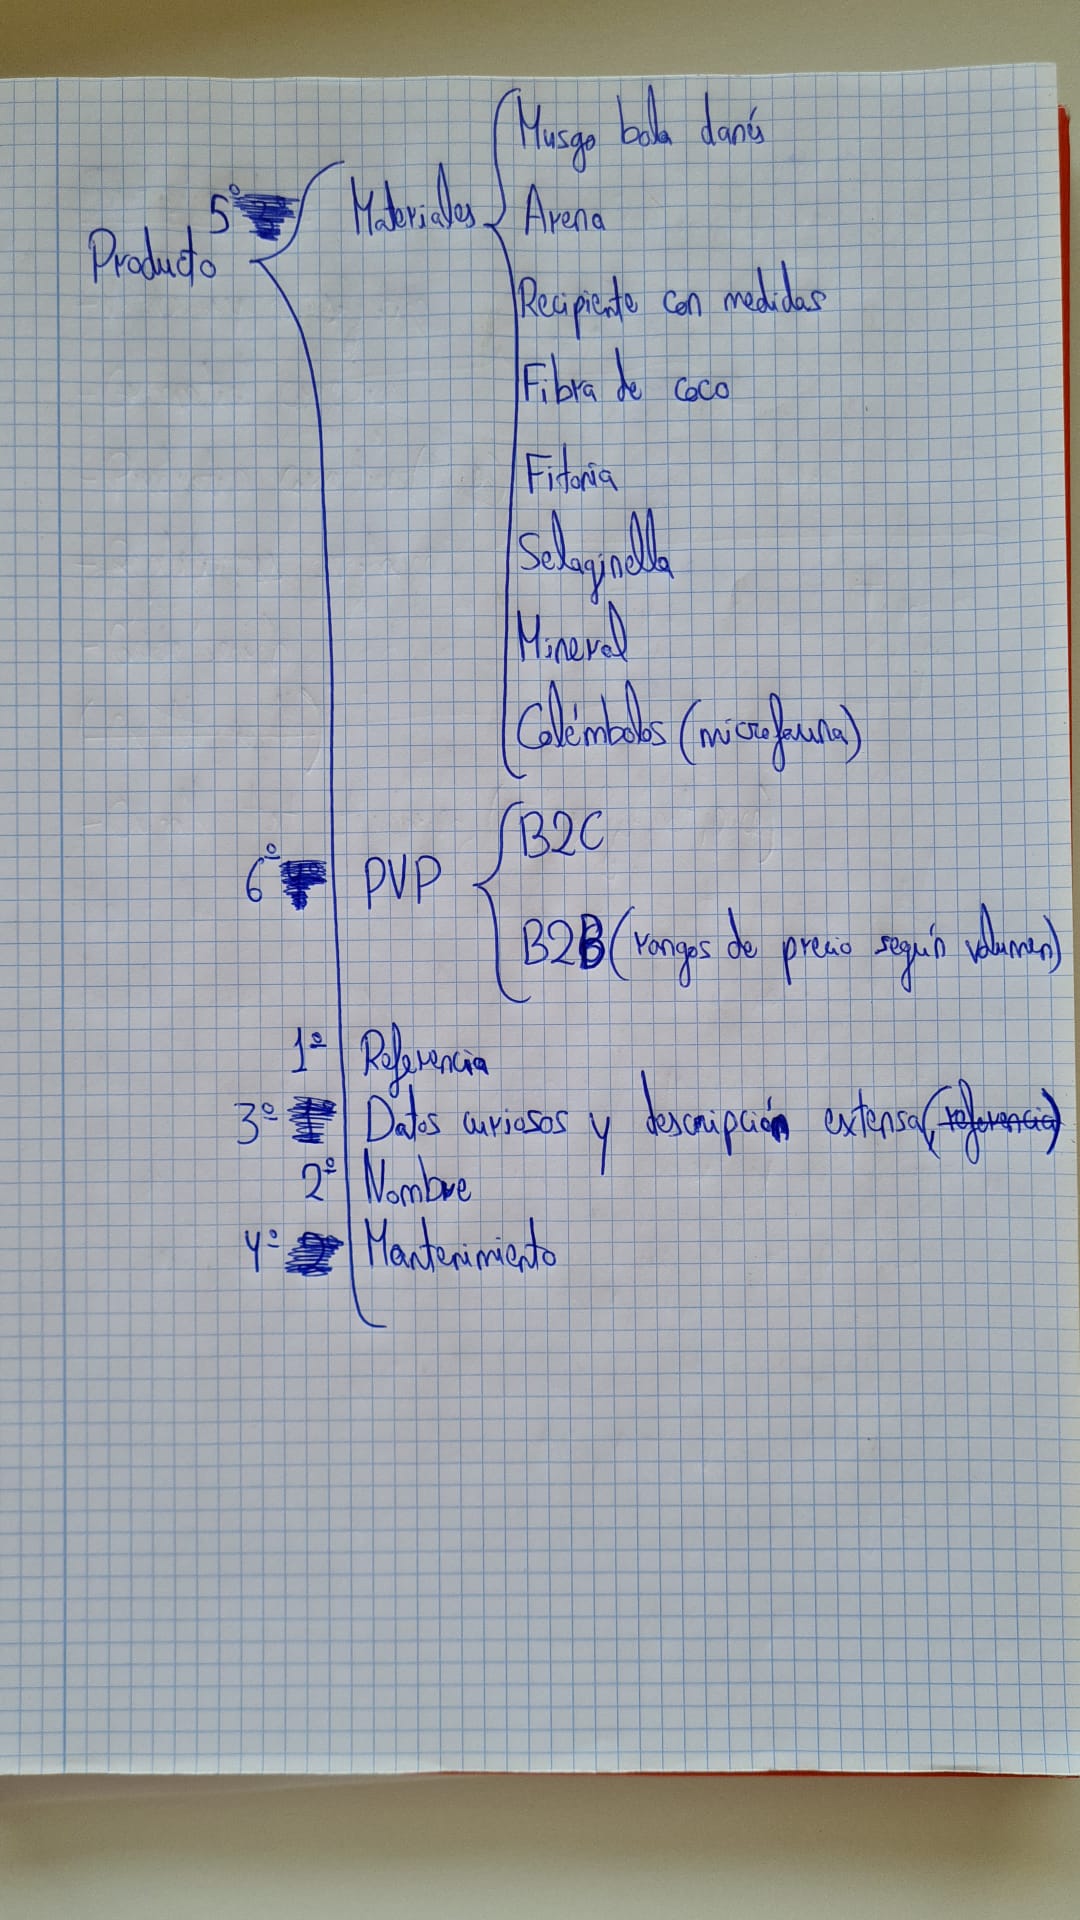 Musgo bola danés
5º
Materiales
Arena
Producto
Recipiente con medidas
Fibra de coco
Fitonia
Selaginella
Mineral
Colémbolos (microfauna)
B2C
6º PVP
B2B (rangos de precio según volumen)
1º Referencia
3º Datos curiosos y descripción extensa (referencia)
2º Nombre
4º Mantenimiento